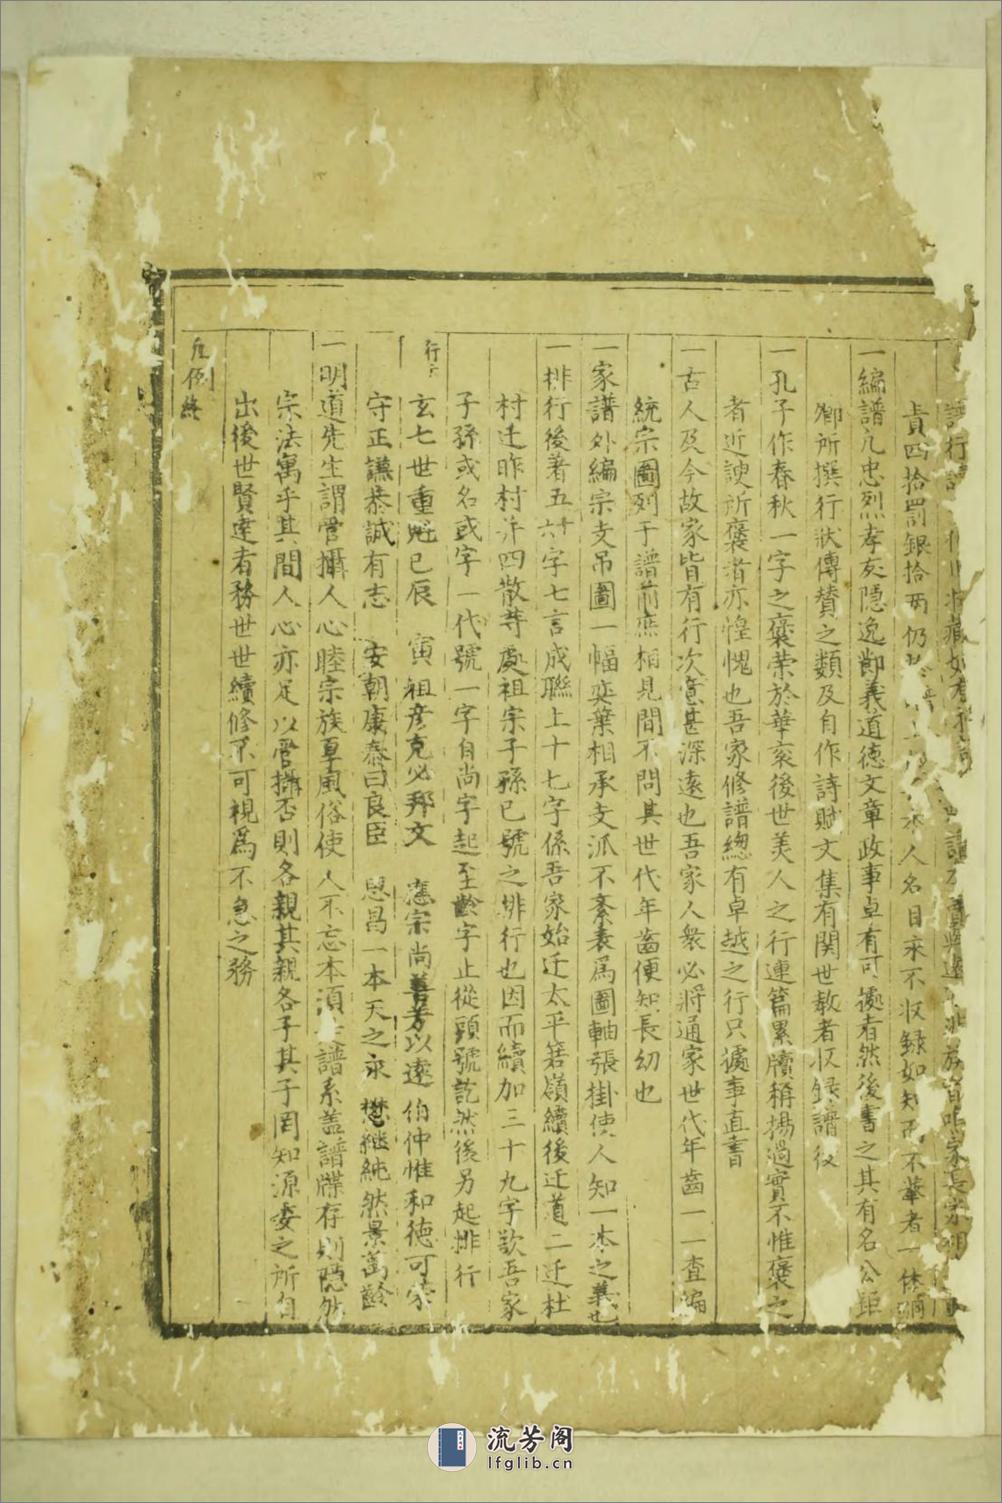 責四拾罰銀拾两仍 人名目永不収録如知而不舉者一体
一編譜凡忠烈孝友隠逸節義道德文章政事卓有可據者然後書之其有名公鉅
卿所撰行状傳賛之類及自作詩賦文集有関世教者収録譜後
一孔子作春秋一字之褒荣於華衮後世美人之行連篇累牘稱揚過實不惟褒之
者近諛所褒者亦惶愧也吾家修譜總有卓越之行只據事直書
一古人及今故家皆有行次意甚深遠也吾家人衆必將通家世代年齒一一查編
統宗圖列于譜前庶相見間不問其世代年齒便知長幼也
一家譜外編宗支吊圖一幅奕葉相承支派不紊表爲圖軸張掛使人知一本之義也
一排行後著五六十字七言成聯上十七字係吾家始迁太平箬嶺續後迁道二迁杜
村迁昨村并四散等處祖宗子孫已號之排行也因而續加三十九字欵吾家
子孫或名或字一代號一字自尚字起至齡字止從頭號訖然後另起排行
行字
玄七世重魁已辰 寅祖彦克必邦文 憲宗尚善芳以遠 伯仲惟和德可崇
守正謙恭誠有志 安朝康泰曰良臣 思昌一本天之永 懋継純然景萬齡
一明道先生謂管攝人心睦宗族厚風俗使人不忘本須 譜系盖譜牒存則隠然
宗法寓乎其間人心亦足以管攝否則各親其親各子其子罔知源委之所自
出後世賢達者務世世續修不可視爲不急之務
凡例終
流芳阁
lfglib.cn